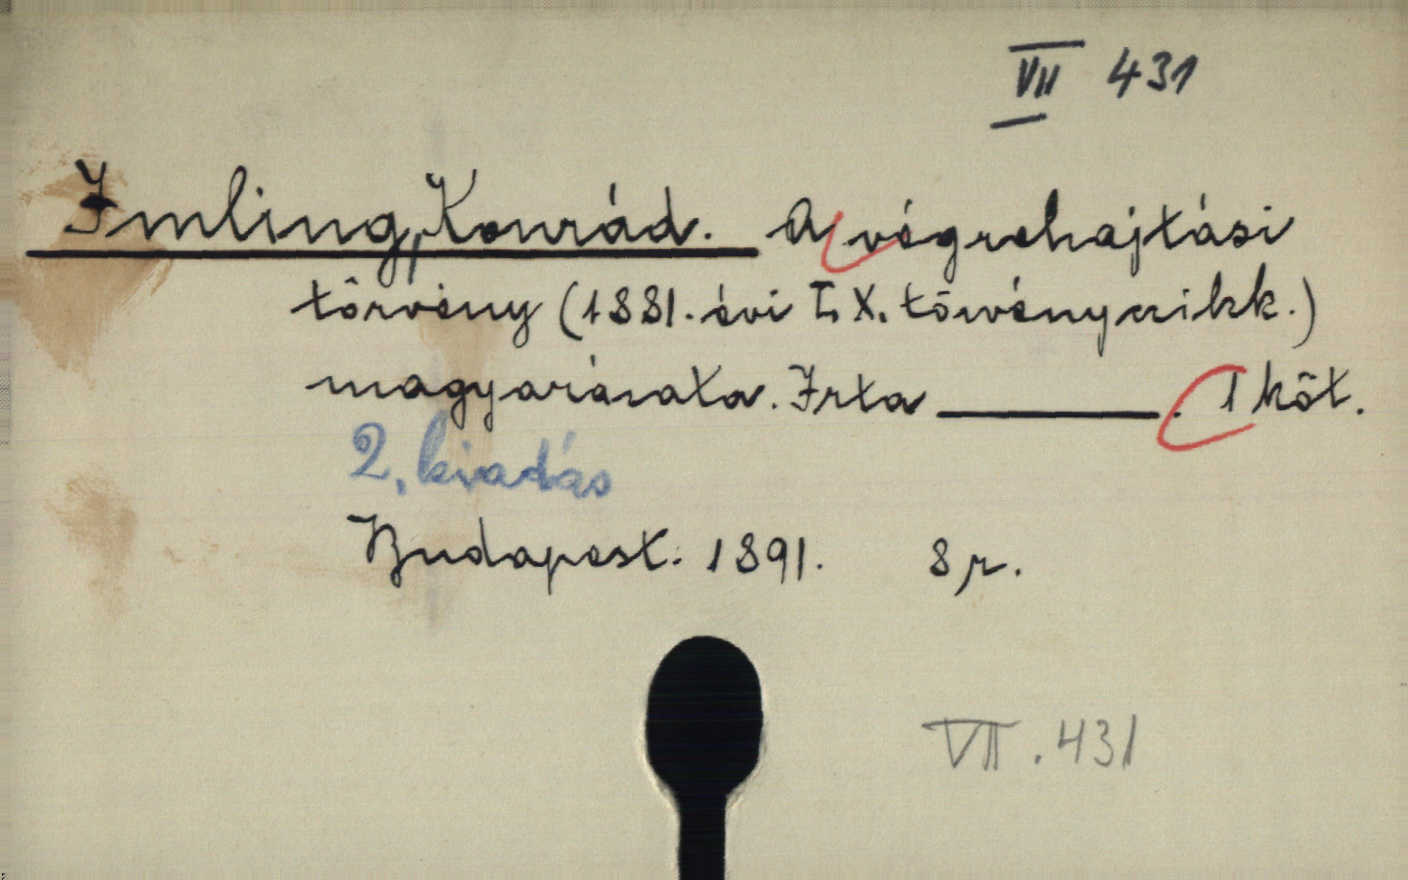 VII 431
Imling, Konrád. A végrehajtási
törvény (1881. évi LX. törvényczikk.)
magyarázata. Irta ———. 1 köt.
2. kiadás
Budapest. 1891. 8 r.
VII. 431